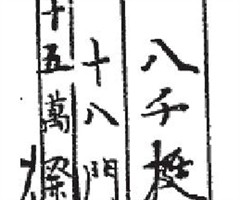 八千挺
十八門
十五萬